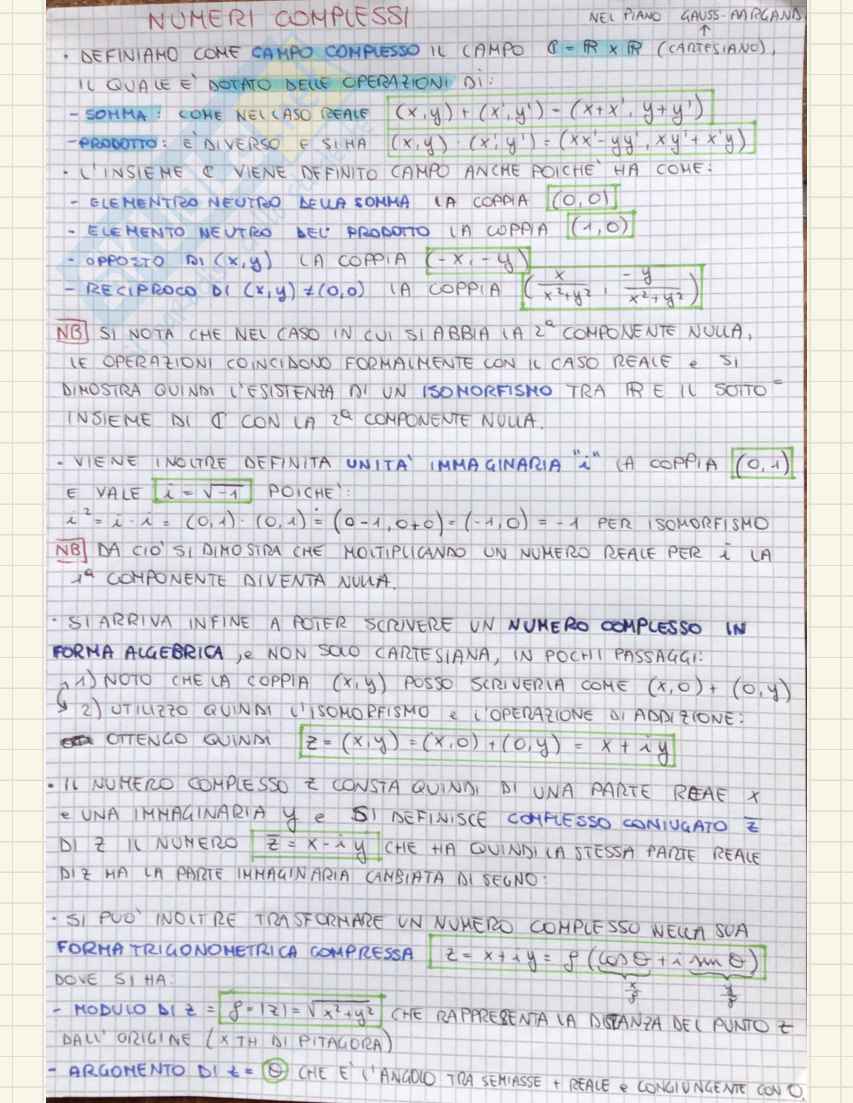 NUMERI COMPLESSI
NEL PIANO GAUSS-ARGAND
↑
• DEFINIAMO COME CAMPO COMPLESSO IL CAMPO ℂ = ℝ × ℝ (CARTESIANO),
IL QUALE E' DOTATO DELLE OPERAZIONI DI:
- SOMMA: COME NEL CASO REALE (x,y) + (x',y') = (x+x', y+y')
- PRODOTTO: E' DIVERSO E SI HA (x,y) · (x',y') = (xx'-yy', xy'+x'y)
• L'INSIEME ℂ VIENE DEFINITO CAMPO ANCHE POICHE' HA COME:
- ELEMENTRO NEUTRO DELLA SOMMA LA COPPIA (0,0)
- ELEMENTO NEUTRO DEL PRODOTTO LA COPPIA (1,0)
- OPPOSTO DI (x,y) LA COPPIA (-x,-y)
- RECIPROCO DI (x,y) ≠ (0,0) LA COPPIA (x/x²+y², -y/x²+y²)
NB SI NOTA CHE NEL CASO IN CUI SI ABBIA LA 2ª COMPONENTE NULLA,
LE OPERAZIONI COINCIDONO FORMALMENTE CON IL CASO REALE e SI
DIMOSTRA QUINDI L'ESISTENZA DI UN ISOMORFISMO TRA ℝ E IL SOTTO=
INSIEME DI ℂ CON LA 2ª COMPONENTE NULLA.
- VIENE INOLTRE DEFINITA UNITA' IMMAGINARIA "i" LA COPPIA (0,1)
E VALE i = √-1 POICHE':
i² = i · i = (0,1) · (0,1) = (0-1, 0+0) = (-1,0) = -1 PER ISOMORFISMO
NB DA CIO' SI DIMOSTRA CHE MOLTIPLICANDO UN NUMERO REALE PER i LA
1ª COMPONENTE DIVENTA NULLA.
• SI ARRIVA INFINE A POTER SCRIVERE UN NUMERO COMPLESSO IN
FORMA ALGEBRICA, e NON SOLO CARTESIANA, IN POCHI PASSAGGI:
1) NOTO CHE LA COPPIA (x,y) POSSO SCRIVERLA COME (x,0) + (0,y)
2) UTILIZZO QUINDI L'ISOMORFISMO e L'OPERAZIONE DI ADDIZIONE:
OTTENGO QUINDI z = (x,y) = (x,0) + (0,y) = x + iy
• IL NUMERO COMPLESSO Z CONSTA QUINDI DI UNA PARTE REAE x
e UNA IMMAGINARIA y e SI DEFINISCE COMPLESSO CONIUGATO z̅
DI Z IL NUMERO z̅ = x - iy CHE HA QUINDI LA STESSA PARTE REALE
DI Z MA LA PARTE IMMAGINARIA CAMBIATA DI SEGNO.
• SI PUO' INOLTRE TRASFORMARE UN NUMERO COMPLESSO NELLA SUA
FORMA TRIGONOMETRICA COMPRESSA z = x + iy = ρ (cos θ + i sin θ)
DOVE SI HA: x/ρ y/ρ
- MODULO DI z = ρ = |z| = √x²+y² CHE RAPPRESENTA LA DISTANZA DEL PUNTO z
DALL'ORIGINE (x TH DI PITAGORA)
- ARGOMENTO DI z = θ CHE E' L'ANGOLO TRA SEMIASSE + REALE e CONGIUNGENTE CON O.